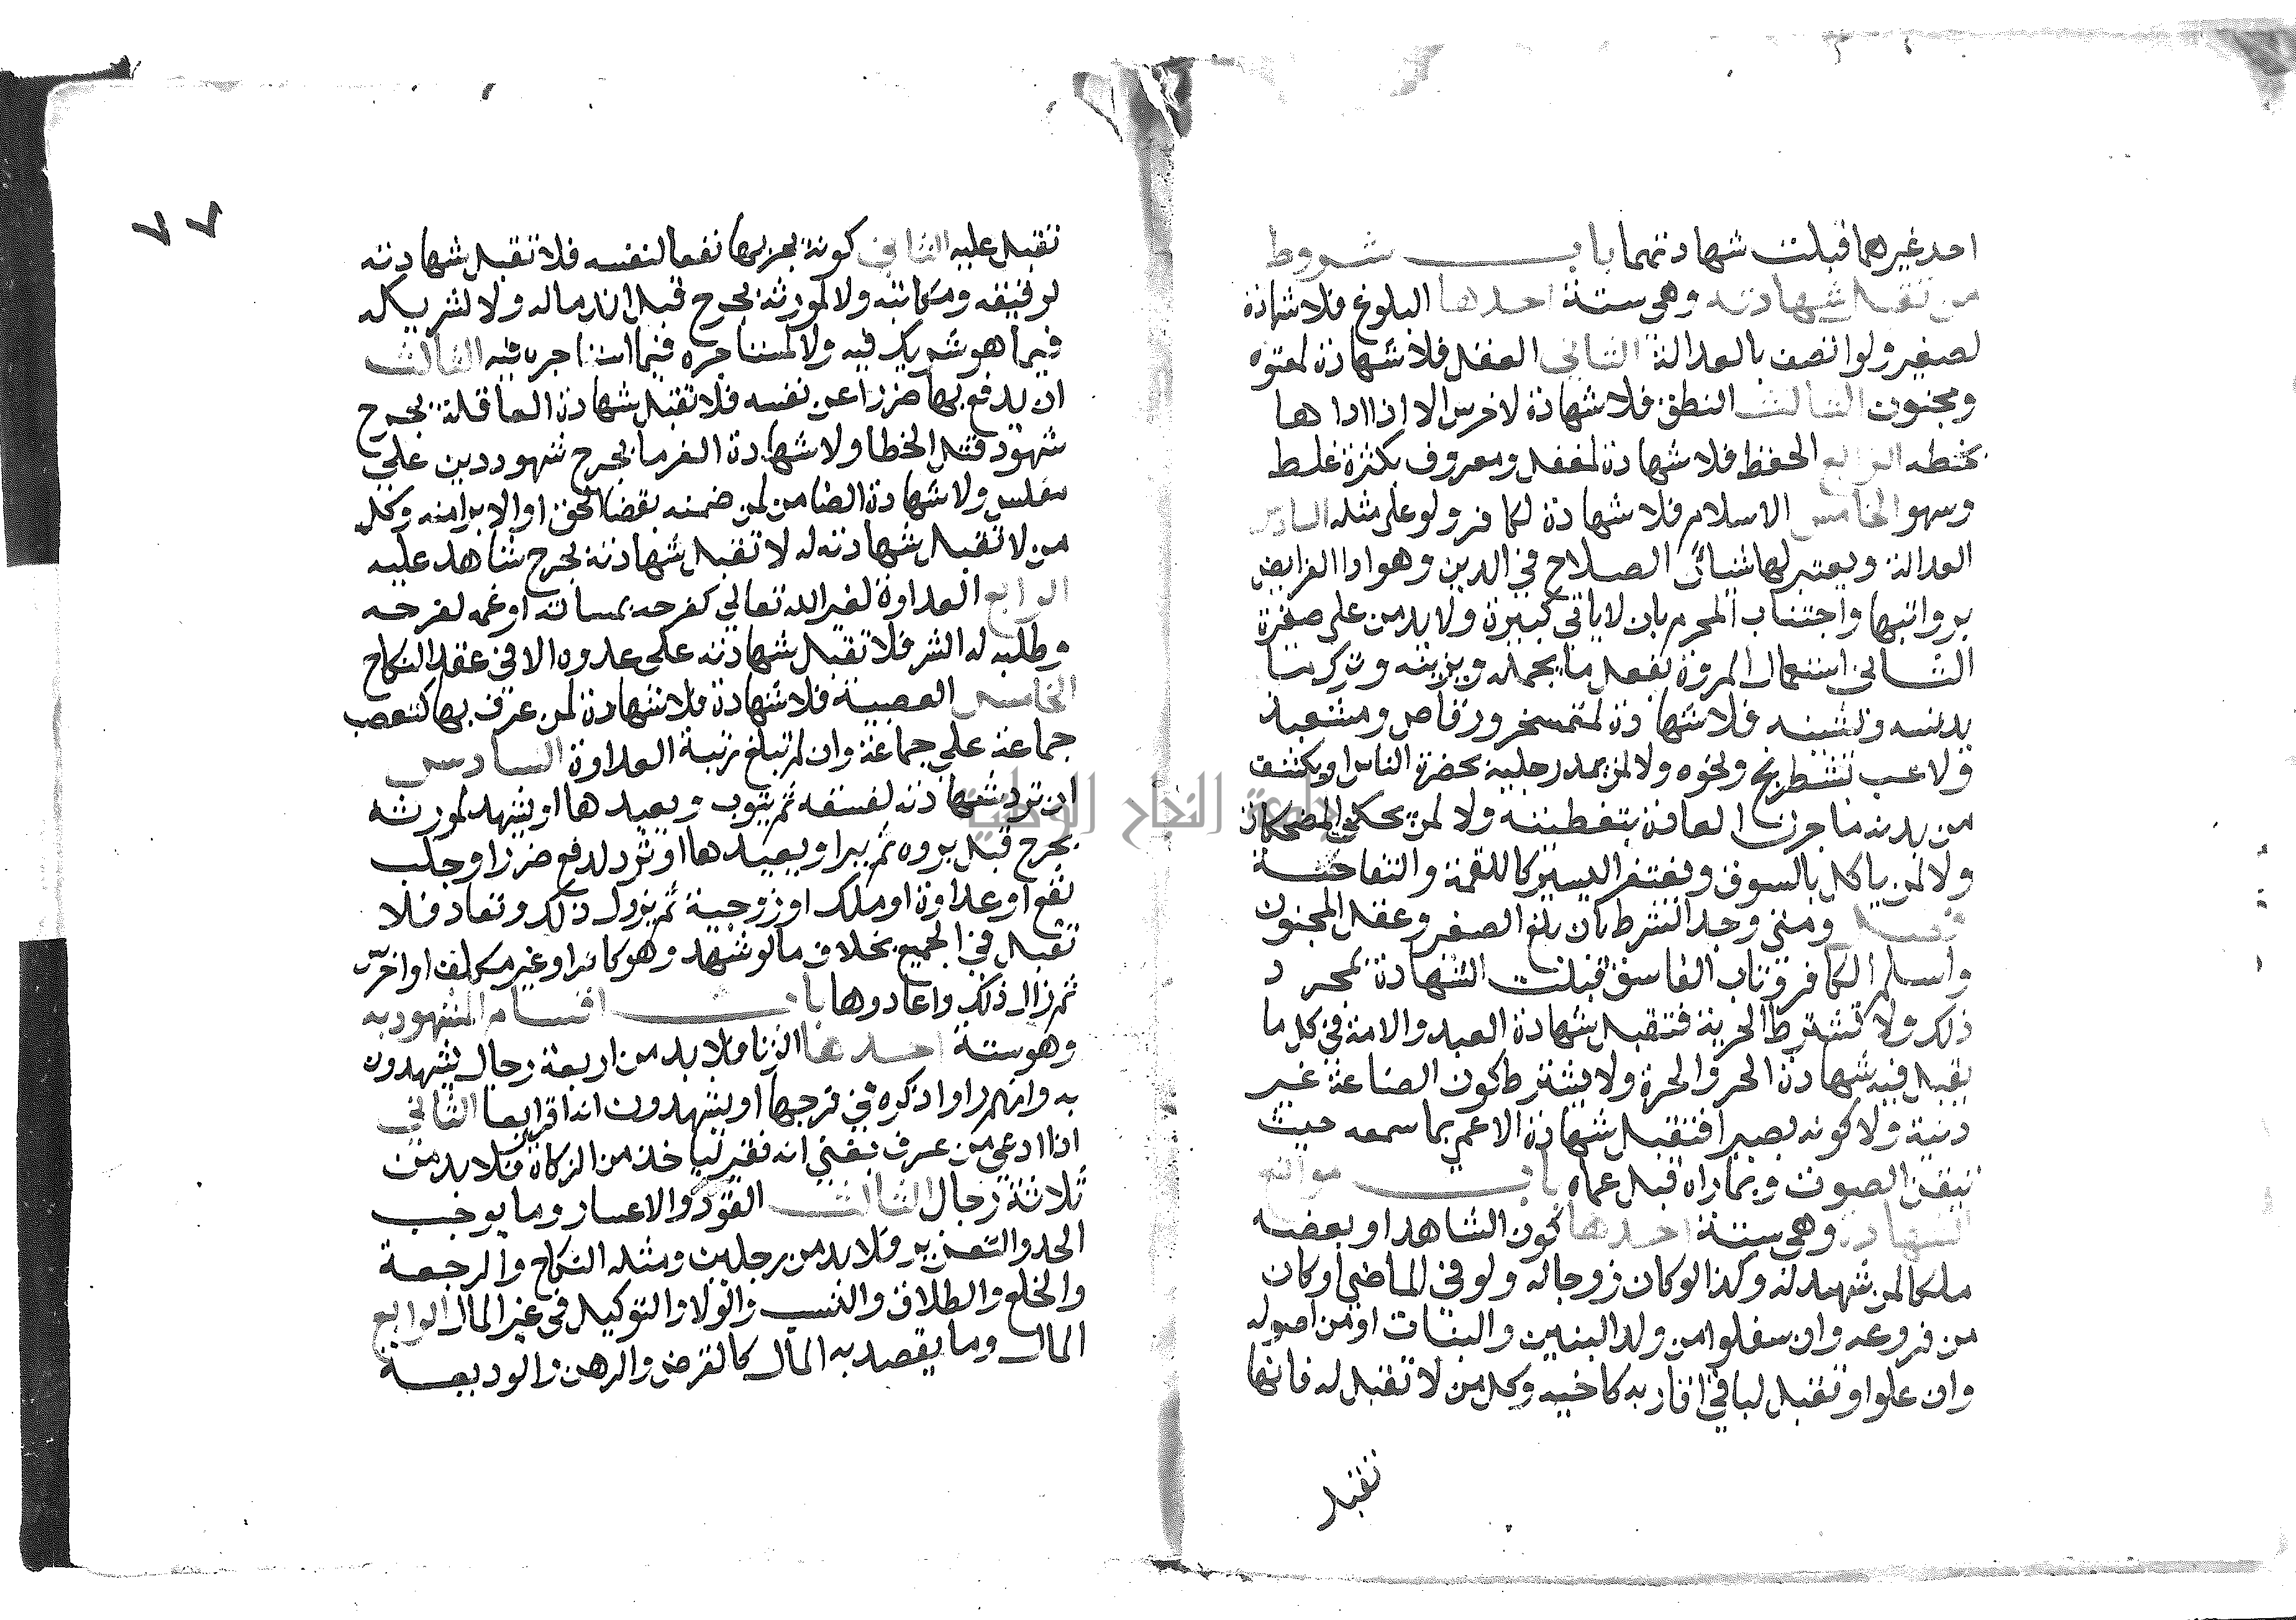 احد غيرهما قبلت شهادتهما باب شروط
من تقبل شهادته وهي ستة احدها البلوغ فلا شهادة
لصغير ولو اتصف بالعدالة الثاني العقل فلا شهادة لمعتوه
ومجنون الثالث النطق فلا شهادة لاخرس الا اذا اداها
بخطه الرابع الحفظ فلا شهادة لمغفل ومعروف بكثرة غلط
وسهو الخامس الاسلام فلا شهادة لكافر ولو على مثله السادس
العدالة ويعتبر لها شيأن الصلاح في الدين وهو ادا الفرايض
برواتبها واجتناب المحرم بان لا ياتي كبيرة ولا يدمن على صغيرة
الثاني استعمال المروة بفعل ما يجمله ويزينه وترك ما
يدنسه ويشينه فلا شهادة لمتمسخر ورقاص ومشعبذ
ولاعب بشطرنج ونحوه ولا لمن يمد رجليه بحضرة الناس او يكشف
من بدنه ما جرت العادة بتغطيته ولا لمن يحكي المضحكات
ولا لمن ياكل بالسوق ويغتفر اليسير كاللقمة والتفاحة
فصل ومتى وجد الشرط بان بلغ الصغير وعقل المجنون
واسلم الكافر وتاب الفاسق قبلت الشهادة بمجرد
ذلك ولا تشترط الحرية فتقبل شهادة العبد والامة في كل ما
يقبل فيه شهادة الحر والحرة ولا يشترط كون الصناعة غير
دنية ولا كونه بصيرا فتقبل شهادة الاعمى بما سمعه حيث
تيقن الصوت وبما راه قبل عماه باب موانع
الشهادة وهي ستة احدها كون الشاهد او بعضه
ملكا لمن شهد له وكذا لو كان زوجا له ولو في الماضي او كان
من فروعه وان سفلوا من ولد البنين والبنات او من اصوله
وان علوا وتقبل لباقي اقاربه كاخيه وكل من لا تقبل له فانها
تقبل
٧٧
تقبل عليه الثاني كونه يجر بها نفعا لنفسه فلا تقبل شهادته
لرقيقه ومكاتبه ولا لمورثه بجرح قبل اندماله ولا لشريكه
فيما هو شريك فيه ولا لمستاجره فيما استاجره فيه الثالث
ان يدفع بها ضررا عن نفسه فلا تقبل شهادة العاقلة بجرح
شهود قتل الخطا ولا شهادة الغرما بجرح شهود دين على
مفلس ولا شهادة الضامن لمن ضمنه بقضا الحق او الابرا منه وكل
من لا تقبل شهادته له لا تقبل شهادته بجرح شاهد عليه
الرابع العداوة لغير الله تعالى كفرحه بمساته او غمه لفرحه
وطلبه له الشر فلا تقبل شهادته على عدوه الا في عقد النكاح
الخامس العصبية فلا شهادة فلا شهادة لمن عرف بها كتعصب
جماعة على جماعة وان لم تبلغ رتبة العداوة السادس
ان ترد شهادته لفسقه ثم يتوب ويعيدها او يشهد لمورثه
بجرح قبل بروه ثم يبرا ويعيدها او ترد لدفع ضرر او جلب
نفع او عداوة او ملك او زوجية ثم يزول ذلك وتعاد فلا
تقبل في الجميع بخلاف ما لو شهد وهو كافرا وغير مكلف او اخرس
ثم زال ذلك واعادوها باب اقسام المشهود به
وهو ستة احدها الزنا فلا بد من اربعة رجال يشهدون
به وانهم راوا ذكره في فرجها او يشهدون انه اقر اربعا الثاني
اذا ادعى من عرف بغنى انه فقير لياخذ من الزكاة فلا بد من
ثلاثة رجال الثالث القود والاعسار وما يوجب
الحد والتعزير فلا بد من رجلين ومثله النكاح والرجعة
والخلع والطلاق والنسب والولا والتوكيل في غير المال الرابع
المال وما يقصد به المال كالقرض والرهن والوديعة
جامعة النجاح الوطنية